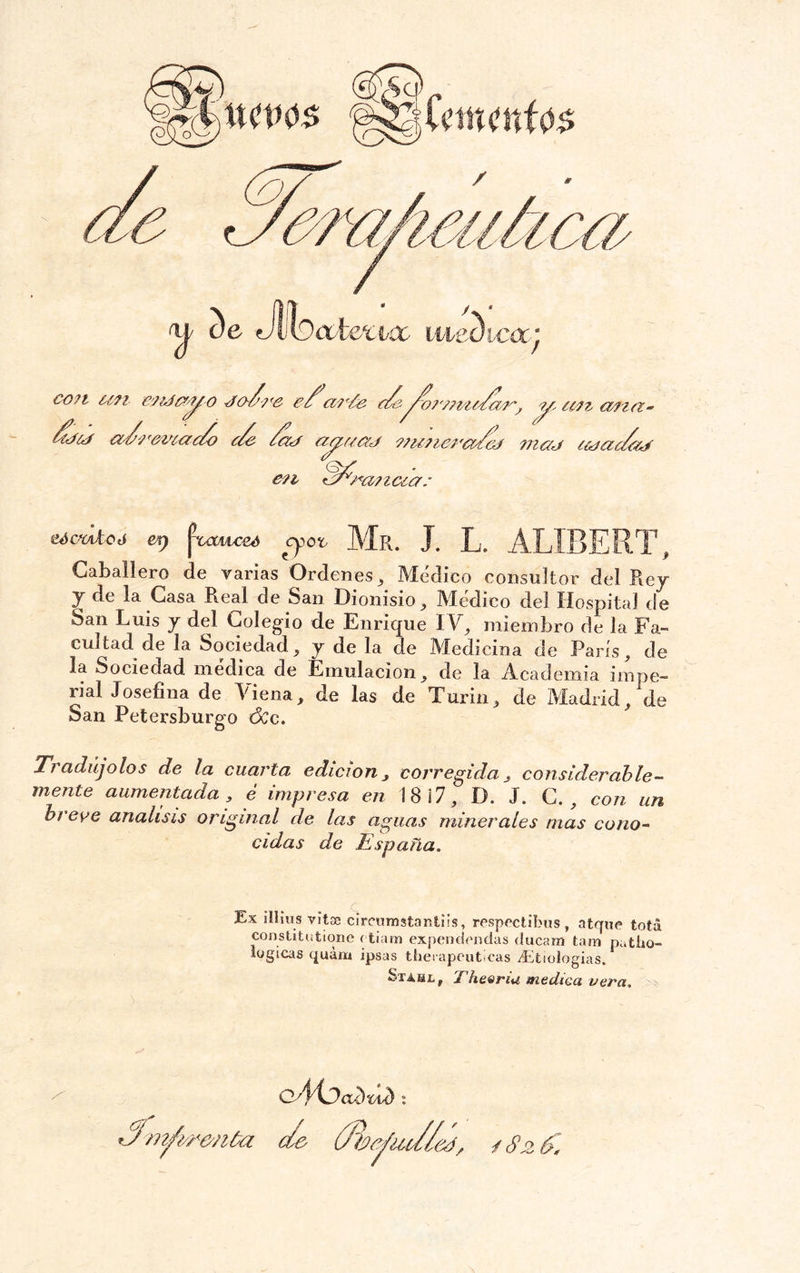 Nuevos Elementos
de Terapéutica
y de Materia médica;
con un ensayo sobre el arte de formular, y un aná-
lisis abreviado de las aguas minerales mas usadas
en Francia:
escritos en frances por MR. J. L. ALIBERT,
Caballero de varias Ordenes, Médico consultor del Rey
y de la Casa Real de San Dionisio, Médico del Hospital de
San Luis y del Colegio de Enrique IV, miembro de la Fa-
cultad de la Sociedad, y de la de Medicina de París, de
la Sociedad médica de Emulacion, de la Academia impe-
rial Josefina de Viena, de las de Turin, de Madrid, de
San Petersburgo &c.
Tradújolos de la cuarta edicion, corregida, considerable-
mente aumentada, é impresa en 1817, D. J. C., con un
breve analisis original de las aguas minerales mas cono-
cidas de España.
Ex illius vitæ circumstantiis, respectibus, atque totâ
constitutione etiam expendendas ducam tam patho-
logicas quàm ipsas therapeuticas Ætiologias.
STAHL, Theoria medica vera.
Madrid:
Imprenta de Repullés, 1826.